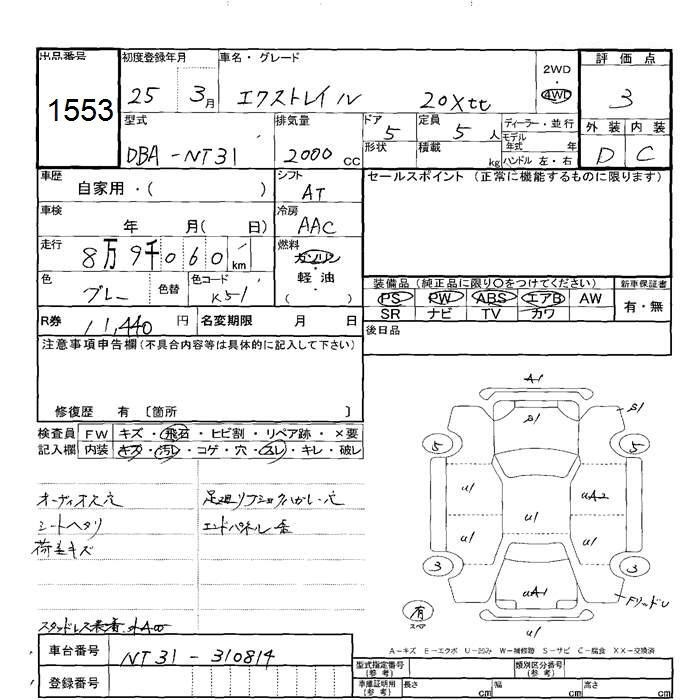 出品番号 初度登録年月 車名・グレード 評価点
1553 25 3月 エクストレイル 20Xtt 2WD・4WD 3
型式 排気量 ドア 定員 ディーラー・並行 外装 内装
DBA-NT31 2000 CC 5 5 人 モデル年式 年 D C
形状 積載 kg ハンドル 左・右
車歴 シフト セールスポイント (正常に機能するものに限ります)
自家用・( ) AT
車検 冷房
年 月( 日) AAC
走行 燃料
8万9千060 km ガソリン・軽油・( )
色 色替 色コード
ブレー K51
装備品(純正品に限り〇をつけてください) 新車保証書
PS PW ABS エアB AW 有・無
SR ナビ TV カワ
R券 11,440 円 名変期限 月 日 後日品
注意事項申告欄(不具合内容等は具体的に記入して下さい)
修復歴 有 〔箇所 〕
検査員 FW キズ・飛石・ヒビ割・リペア跡・×要
記入欄 内装 キズ・汚レ・コゲ・穴・スレ・キレ・破レ
オーディオス穴
シートヘタリ エンドパネル
荷キズ
スタッドレス
A1
S1 S1
5 5
U1 UA2
U1 U1 U1
3 3
UA1 FリッドU
有 スペア
U1
A-キズ E-エクボ U-凹み W-補修跡 S-サビ C-腐食 XX-交換済
車台番号 NT31-310814
登録番号
型式指定番号(参考) 類別区分番号(参考)
車庫証明用(参考) 長さ cm 幅 cm 高さ cm